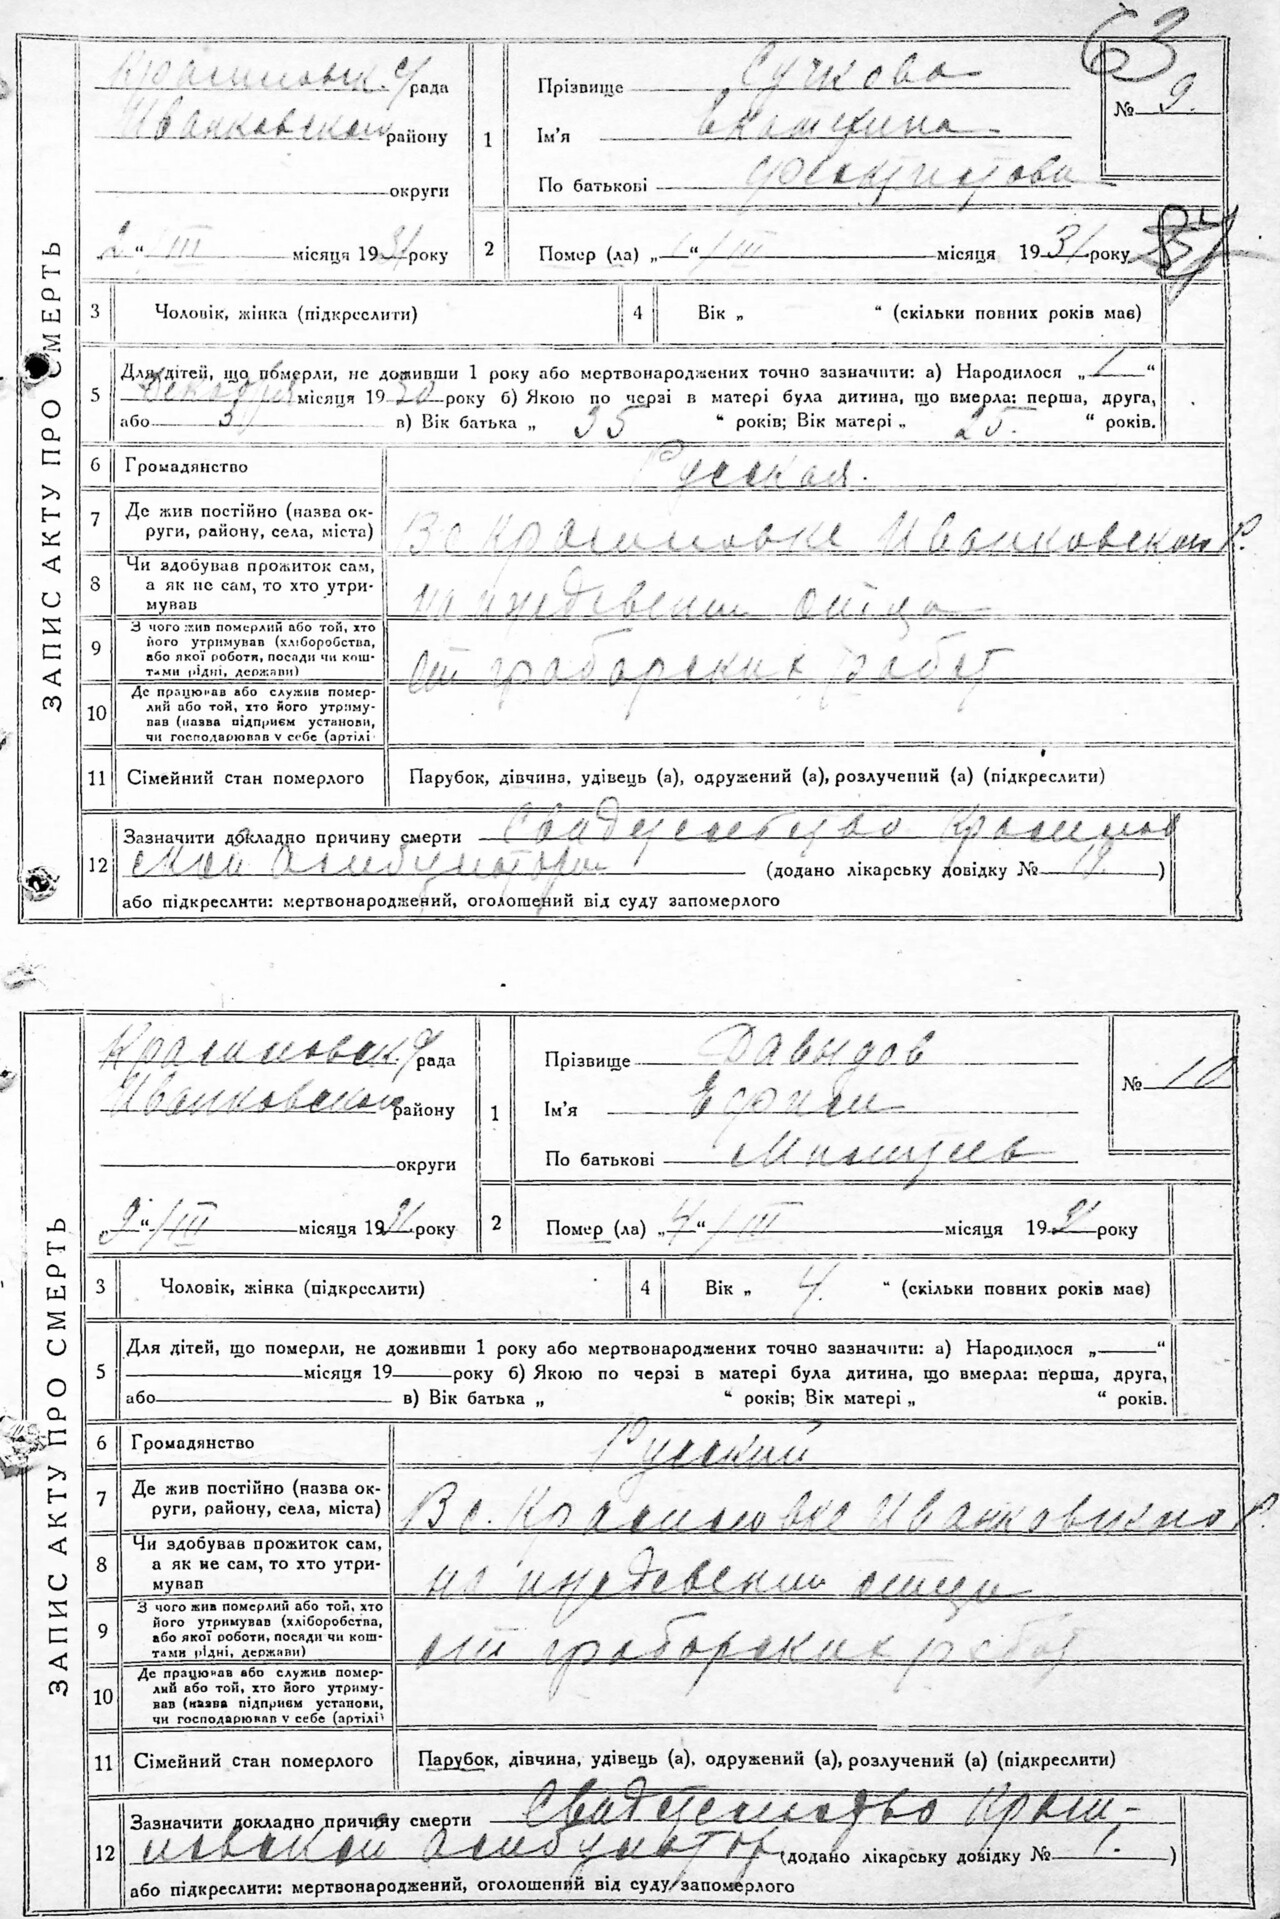 63
ЗАПИС АКТУ ПРО СМЕРТЬ
Красиловск. с/рада
Иванковского району
округи
2 “/III місяця 1931 року
1
Прізвище Сучкова
Ім’я Екатерина
По батькові Феоктистова
№ 9.
2
Помер (ла) „ 1 “/III місяця 1931 року
3 Чоловік, жінка (підкреслити)
4 Вік „ “ (скільки повних років має)
5 Для дітей, що померли, не доживши 1 року або мертвонароджених точно зазначити: а) Народилося „ 1 “
Декабря місяця 1930 року б) Якою по черзі в матері була дитина, що вмерла: перша, друга,
або 3 в) Вік батька „ 35 “ років; Вік матері „ 25. “ років.
6 Громадянство Русская.
7 Де жив постійно (назва ок-
руги, району, села, міста) В с. Красиловке Иванковского р.
8 Чи здобував прожиток сам,
а як не сам, то хто утри-
мував на иждевении отца
9 З чого жив померлий або той, хто
його утримував (хліборобства,
або якої роботи, посади чи кош-
тами рідні, держави) от граборских работ
10 Де працював або служив помер-
лий або той, хто його утриму-
вав (назва підприєм установи,
чи господарював у себе (артілі
11 Сімейний стан померлого Парубок, дівчина, удівець (а), одружений (а), розлучений (а) (підкреслити)
12 Зазначити докладно причину смерти Свидетельство Красилов
ской Амбулатории (додано лікарську довідку № )
або підкреслити: мертвонароджений, оголошений від суду запомерлого
ЗАПИС АКТУ ПРО СМЕРТЬ
Красиловск. с/рада
Иванковского району
округи
„ 9 “/III місяця 1931 року
1
Прізвище Давыдов
Ім’я Ефим
По батькові
№ 10
2
Помер (ла) „ 4 “/III місяця 1931 року
3 Чоловік, жінка (підкреслити)
4 Вік „ 4. “ (скільки повних років має)
5 Для дітей, що померли, не доживши 1 року або мертвонароджених точно зазначити: а) Народилося „ “
місяця 19 року б) Якою по черзі в матері була дитина, що вмерла: перша, друга,
або в) Вік батька „ “ років; Вік матері „ “ років.
6 Громадянство Русский
7 Де жив постійно (назва ок-
руги, району, села, міста) В с. Красиловке Иванковского р.
8 Чи здобував прожиток сам,
а як не сам, то хто утри-
мував на иждевении отца
9 З чого жив померлий або той, хто
його утримував (хліборобства,
або якої роботи, посади чи кош-
тами рідні, держави) от граборских работ
10 Де працював або служив помер-
лий або той, хто його утриму-
вав (назва підприєм установи,
чи господарював у себе (артілі
11 Сімейний стан померлого Парубок, дівчина, удівець (а), одружений (а), розлучений (а) (підкреслити)
12 Зазначити докладно причину смерти Свидетельство Краси-
ловской Амбулатор (додано лікарську довідку № 1. )
або підкреслити: мертвонароджений, оголошений від суду запомерлого